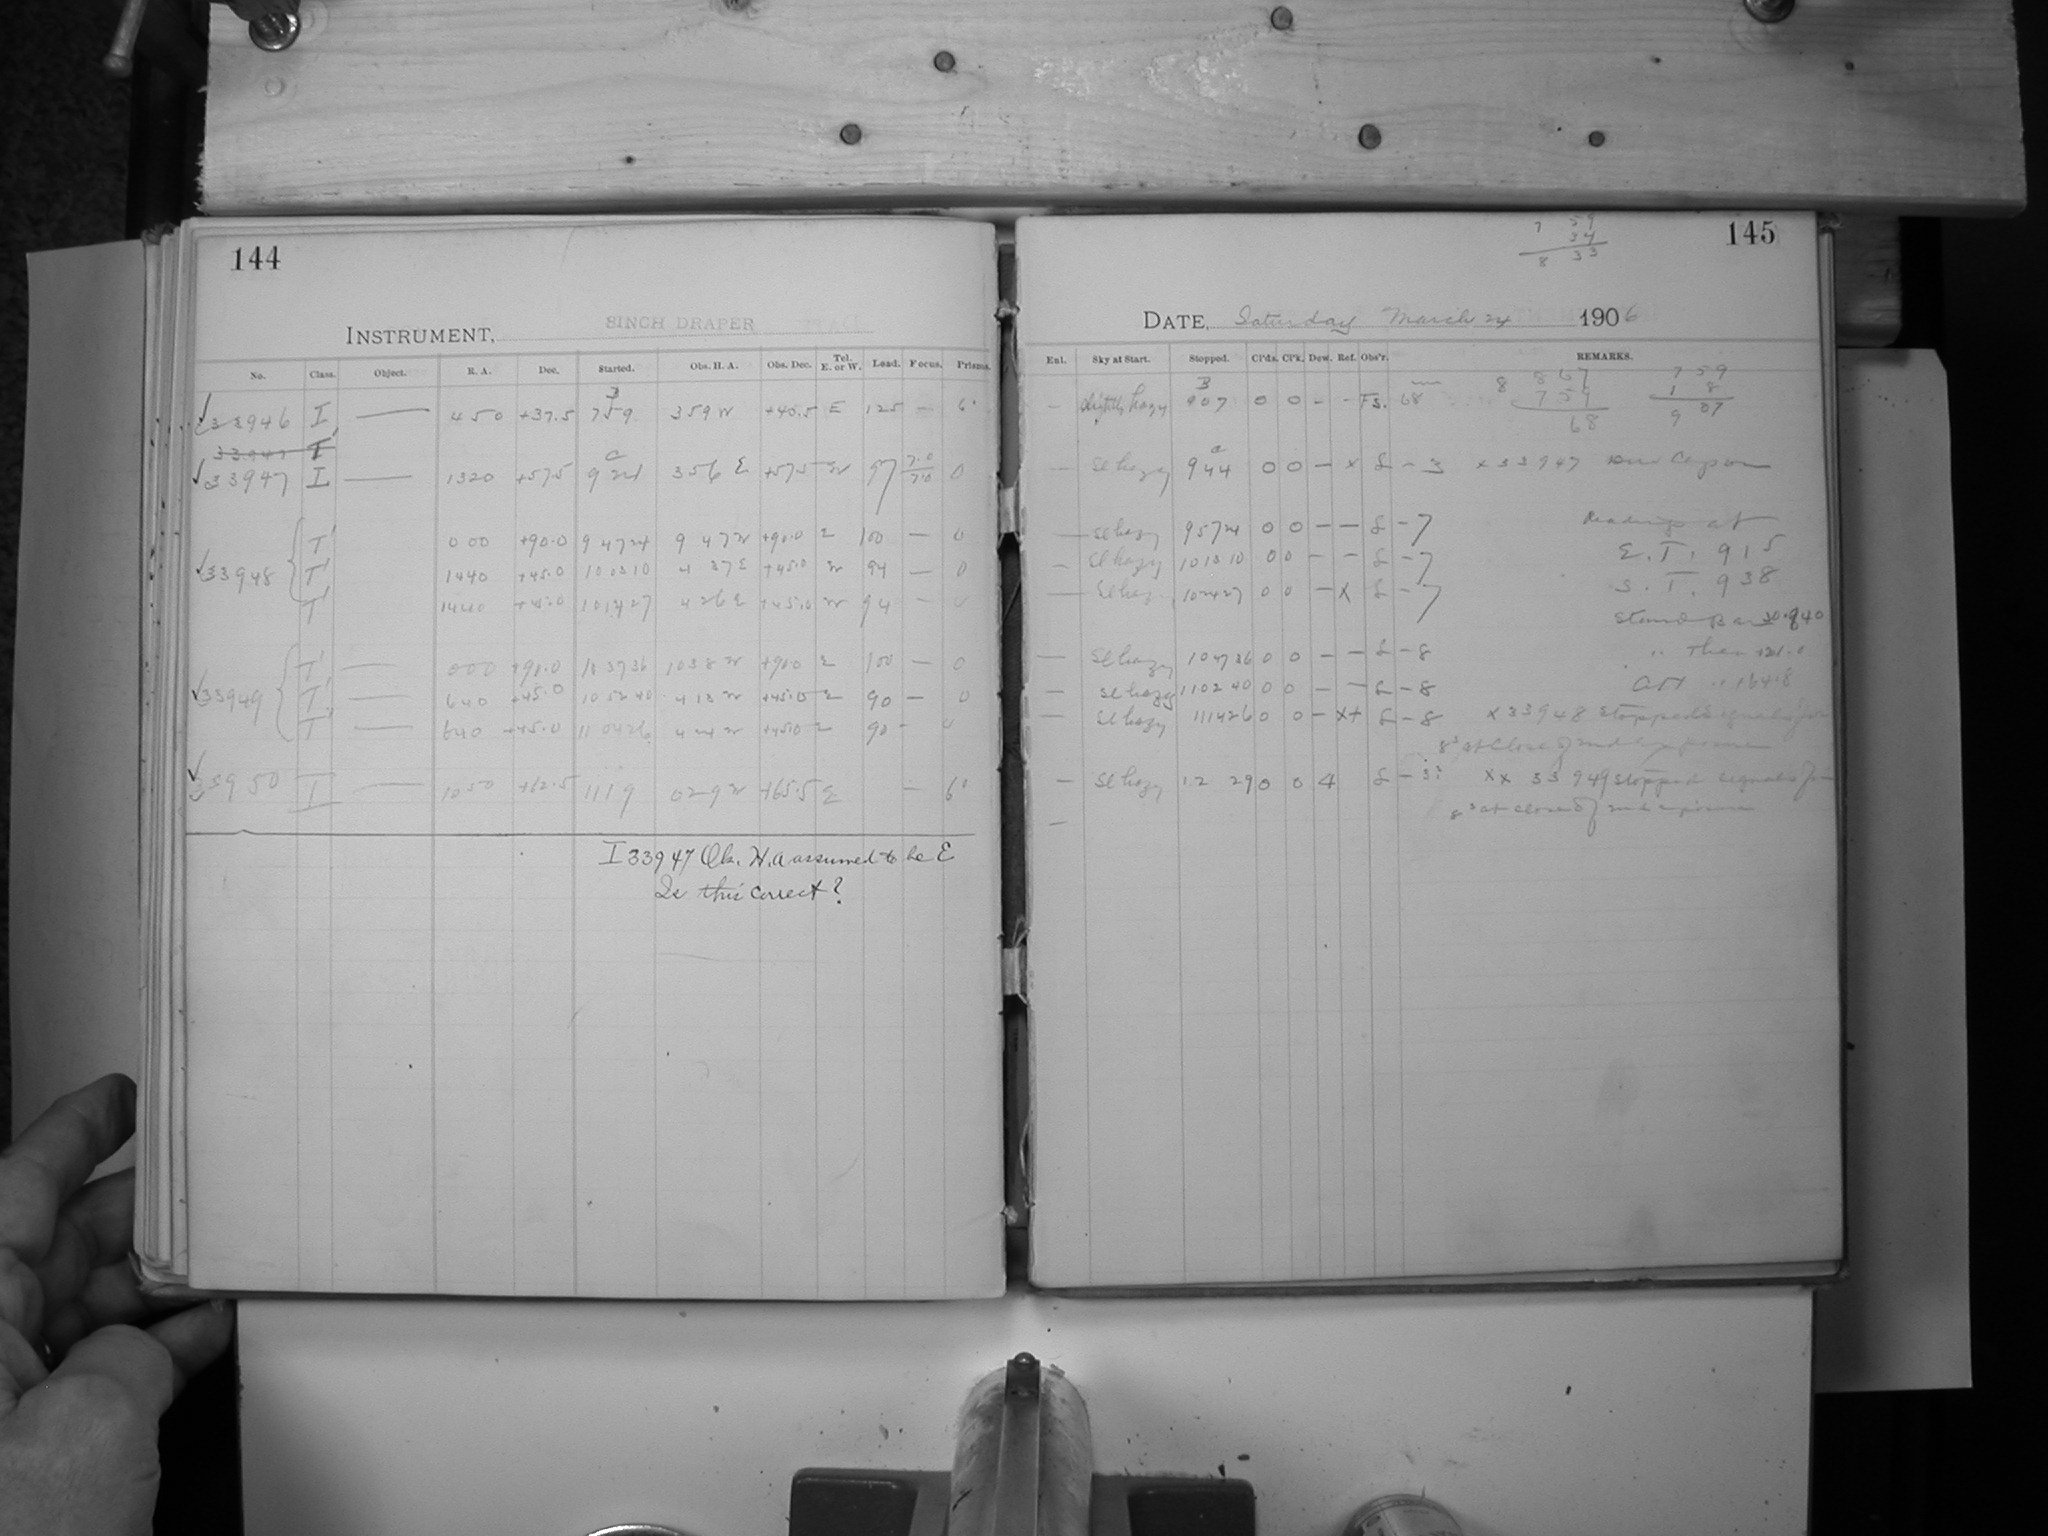 144
INSTRUMENT, 8INCH DRAPER
No. Class. Object. R. A. Dec. Started. Obs. H. A. Obs. Dec. Tel. E. or W. Lead. Focus. Prisms.
B
33946 I — 4 50 +37.5 7 59 3 59 W +40.5 E 125 — 6°
33947 I'
C
33947 I — 13 20 +57.5 9 24 3 56 E +57.5 W 97 7.0/7.0 0
I' 0 00 +90.0 9 47 24 9 47 W +90.0 E 100 — 0
33948 I' 14 40 +45.0 10 03 10 4 37 E +45.0 W 94 — 0
I' 14 40 +45.0 10 14 27 4 26 E +45.0 W 94 — 0
I' — 0 00 +90.0 10 37 36 10 38 W +90.0 E 100 — 0
33949 I' — 6 40 +45.0 10 52 40 4 13 W +45.0 E 90 — 0
I' — 6 40 +45.0 11 04 26 4 24 W +45.0 E 90 — 0
33950 I — 10 50 +62.5 11 19 0 29 W +65.5 E — 6°
I 33947 Ob. H.A assumed to be E
Is this correct?
7 59
34
8 33
145
DATE, Saturday March 24 1906
Enl. Sky at Start. Stopped. Cl'ds. Cl'k. Dew. Ref. Obs'r. REMARKS.
B
— slightly hazy 9 07 0 0 - - Fs. 68
8 8 67
7 59
68
7 59
1 8
9 07
C
— sl hazy 9 44 0 0 — x S — 3 x 33947 Dew Cap on
— sl hazy 9 57 24 0 0 — — S — 7 Readings at
E. T. 9 15
— sl hazy 10 13 10 0 0 — — S — 7
S. T. 9 38
— sl hazy 10 24 27 0 0 — x S — 7
— sl hazy 10 47 36 0 0 — — S — 8
— sl hazy 11 02 40 0 0 — — S — 8
— sl hazy 11 14 26 0 0 — x+ S — 8 x 33948 stopped signals for
8s at close of 2nd exposure
— sl hazy 12 29 0 0 4 S xx 33949 stopped signals for
8s at close of 2nd exposure